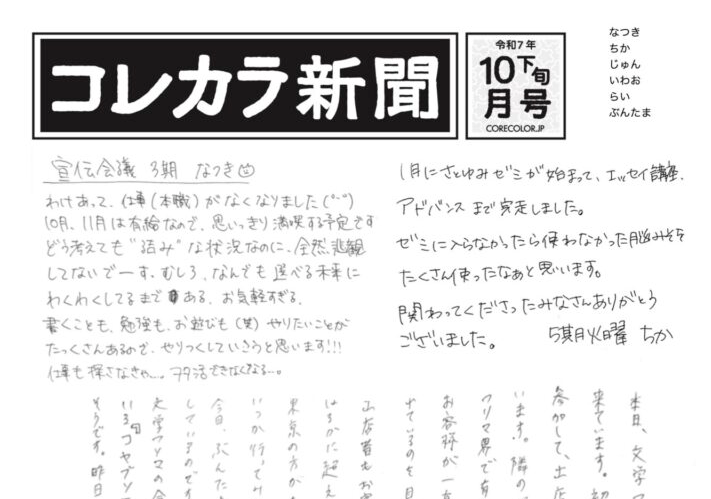 コレカラ新聞
令和7年
10月下旬号
CORECOLOR.JP
なつき
ちか
じゅん
いわお
らい
ぶんたま
宣伝会議 3期 なつき
わけあって、仕事(本職)がなくなりました(°ᵕ°)
10月、11月は有給なので、思いっきり満喫する予定です
どう考えても"詰み"な状況なのに、全然悲観
してないでーす。むしろ、なんでも選べる未来に
わくわくしてるまである。お気軽すぎる。
書くことも、勉強も、お遊びも(笑)やりたいことが
たっくさんあるので、やりつくしていこうと思います!!!
仕事も探さなきゃ…。ヲタ活できなくなる…。
1月にさとゆみゼミが始まって、エッセイ講座、
アドバンスまで完走しました。
ゼミに入らなかったら使わなかった脳みそを
たくさん使ったなぁと思います。
関わってくださったみなさんありがとう
ございました。 5期火曜 ちか
本日、文学フ
来ています。初
参加して、土店
います。隣の
フリマ界で有
お客様が一
げているのを目
山店着もお
はるかに超え
東京の方が
いつか行ってみ
今日、ぶんた
しているのです
文学フリマの会
いるコヤブソ
そうです。昨日